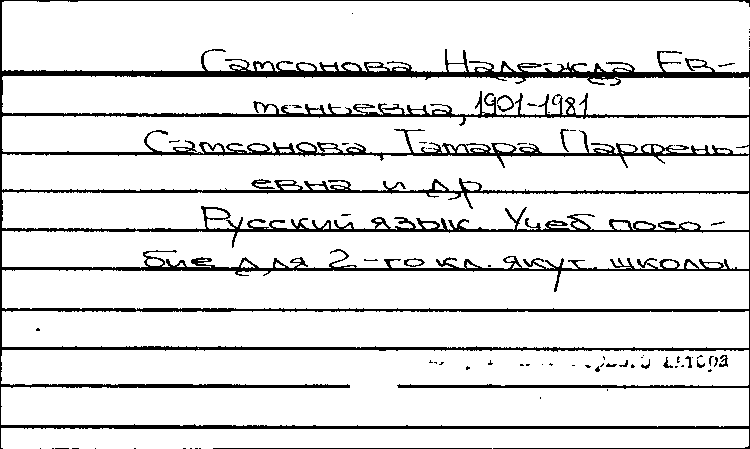 Самсонова, Надежда Ев-
теньевна, 1901-1981
Самсонова, Тамара Парфень-
евна и др
Русский язык. Учеб посо-
бие для 2-го кл. якут. школы.
автора